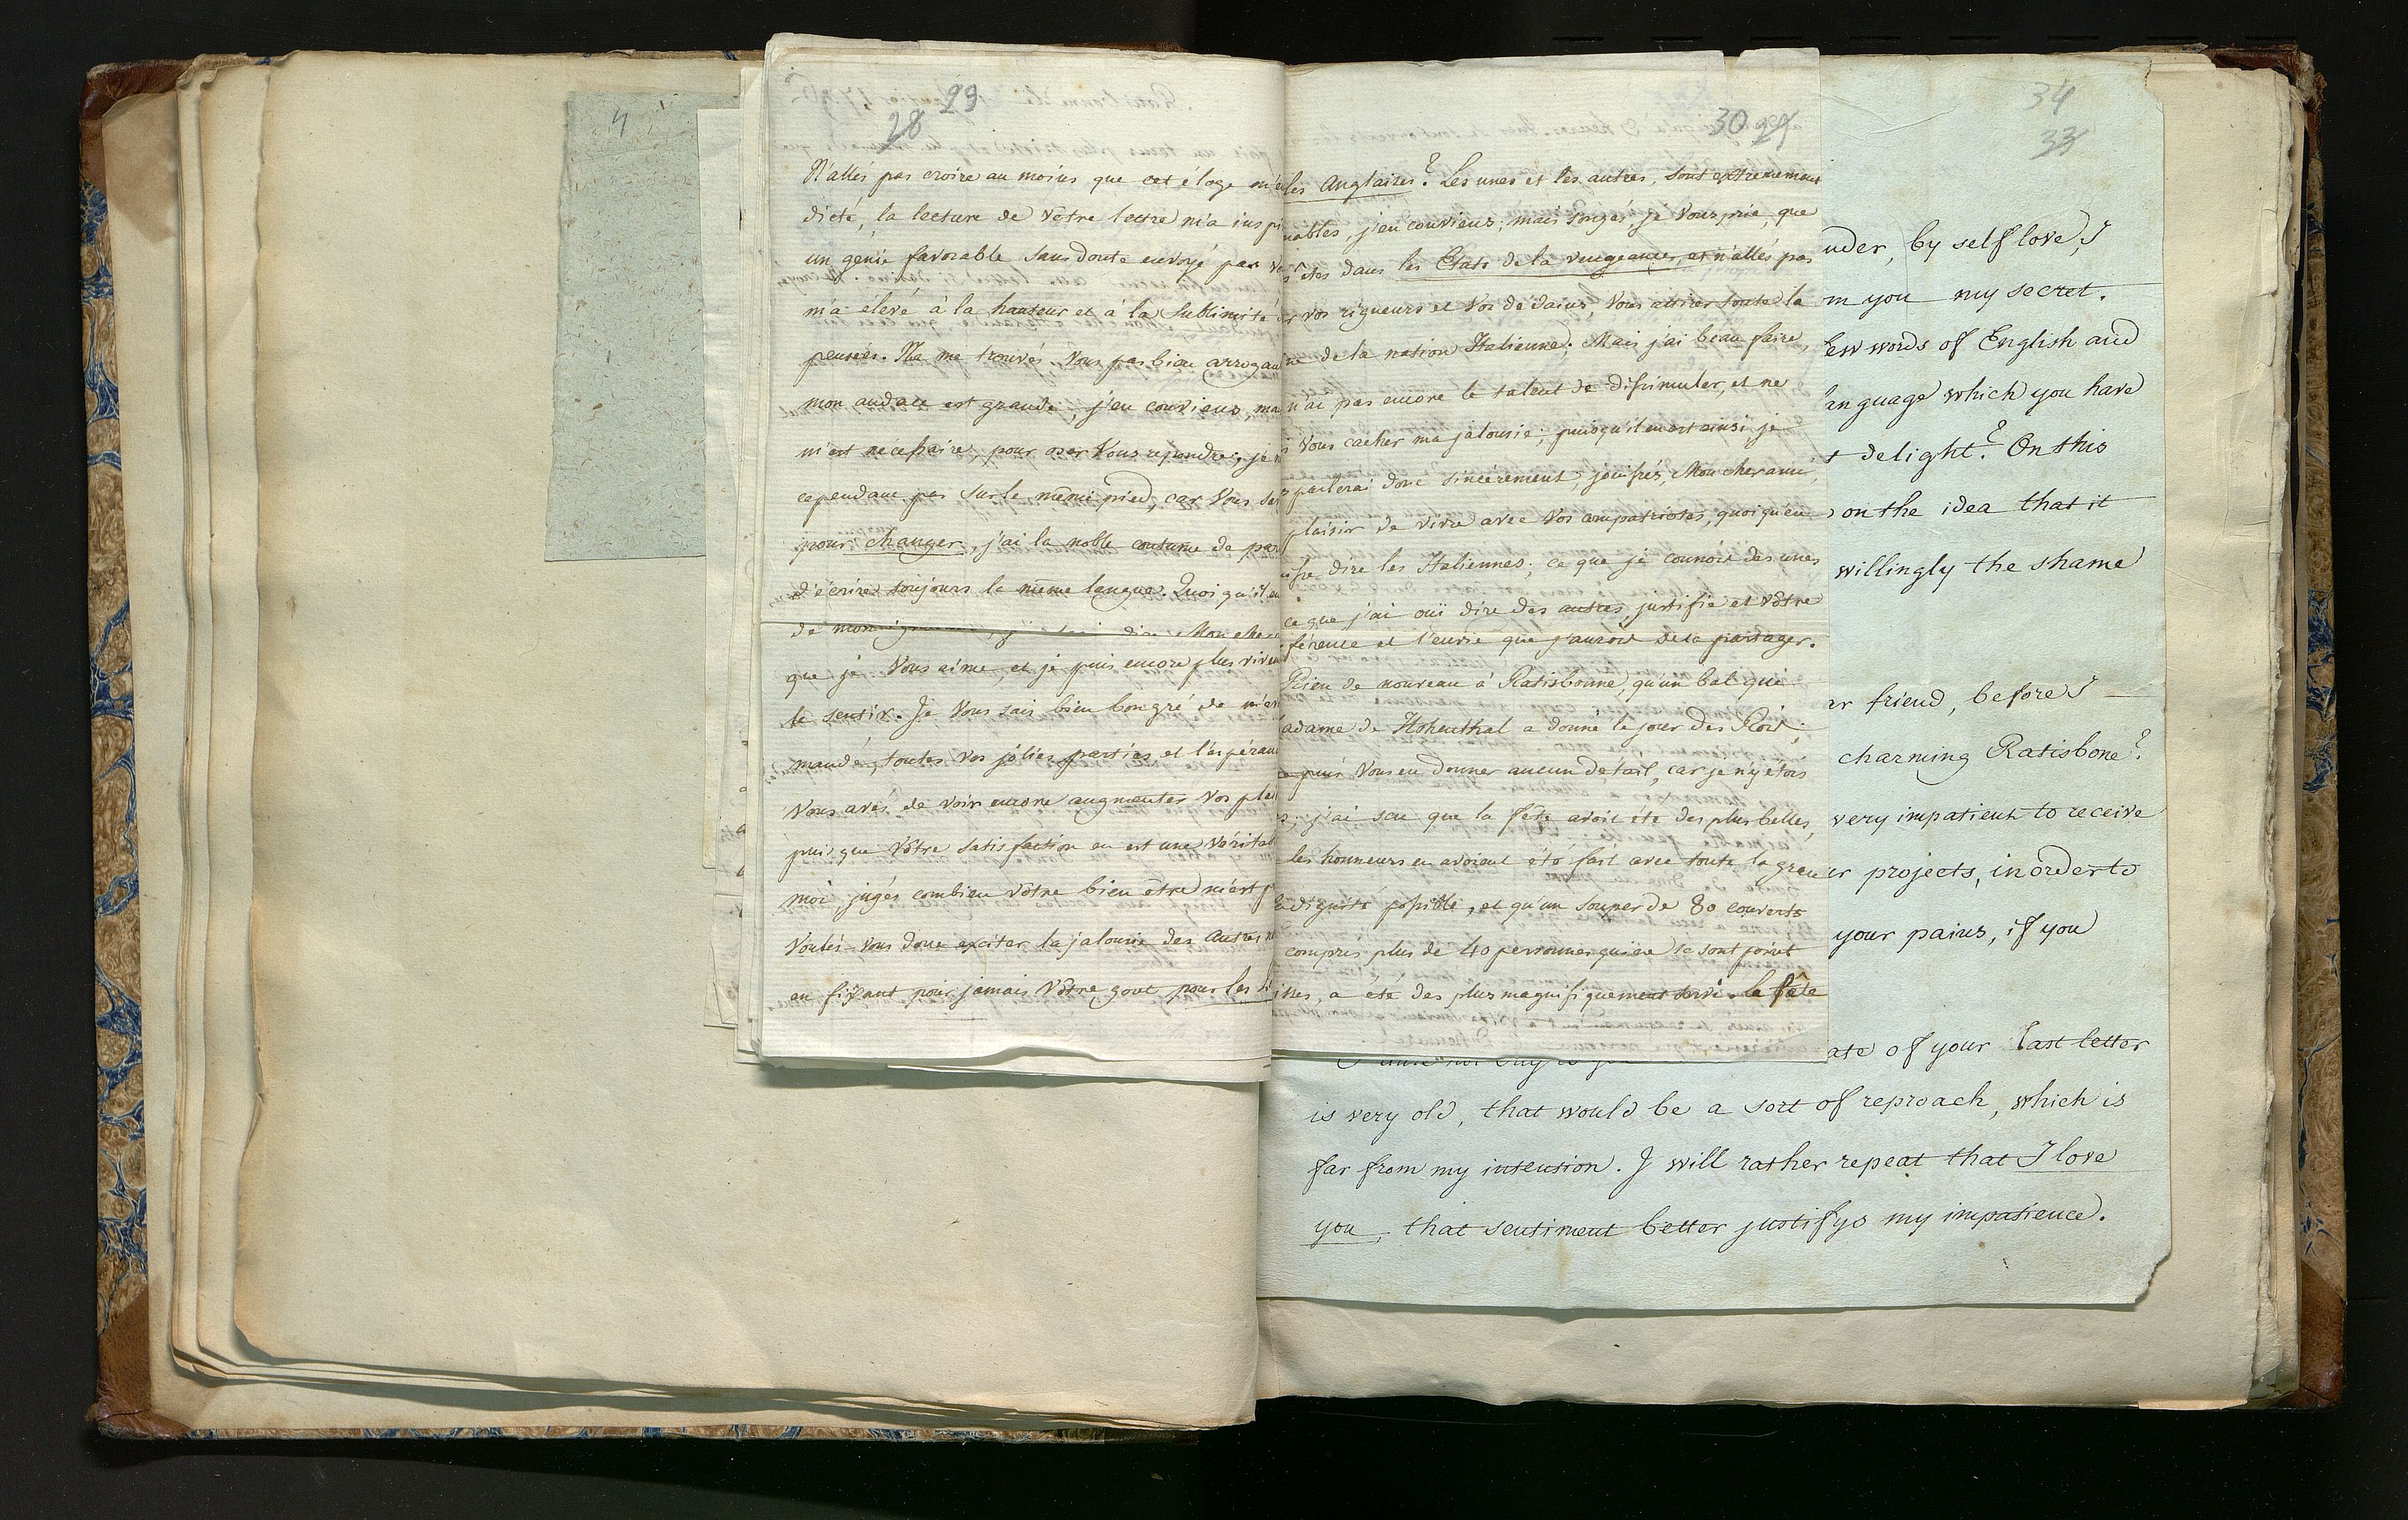 4
29
28
N'allés pas croire au moins que cet éloge m'e
dicté, la lecture de vôtre lettre m'a inspi
un génie favorable sans doute envoyé par vo
m'a élevé à la hauteur et à la sublimité d
pensées. Ne me trouvés-vous pas bien arrogan
mon audace est grande, j'en conviens, ma
m'est nécessaire, pour oser Vous répondre, je n
cependant pas sur le même pied, car Vous sa
pour changer, j'ai la noble coutume de par
d'écrire toujours la même langue. Quoiqu'il en
de mon dire Mon cher
que je Vous aime, et je puis encore plus vivem
le sentir. Je Vous sais bien bon gré de m'av
mandé, toutes vos jolies parties et l'espéran
Vous avés de voir encore augmenter vos plai
puisque Vôtre satisfaction en est une véritab
moi, jugés combien vôtre bien être m'est p
Voulés-vous donc exciter la jalousie des autres n
en fixant pour jamais Vôtre gout pour les
30 29
les Anglaises? Les unes et les autres, sont extremement
mables, j'en conviens; mais songés, je Vous prie, que
s êtes dans les Etats de la vengeance, et n'allés pas
r vos rigueurs et Vos dédains, Vous attirer toute la
ne de la nation Italienne. Mais j'ai beau faire,
n'ai pas encore le talent de dissimuler, et ne
s Vous cacher ma jalousie; puisqu'il en est ainsi, je
parlerai donc sincèrement, jouissés, Mon cher ami,
plaisir de vivre avec Vos compatriotes, quoiqu'en
sse dire les Italiennes; ce que je connois des unes
ce que j'ai ouï dire des autres, justifie et vôtre
férence et l'envie que j'aurois de la partager.
Rien de nouveau à Ratisbonne, qu'un bal que
adame de Hohenthal a donné le jour des Rois;
e puis Vous en donner aucun détail, car je n'y étois
s; j'ai scu que la fête avoit été des plus belles,
les honneurs en avoient été fait avec toute la grace
dignité possible, et qu'un souper de 80 couverts
compris plus de 40 personnes qui ne se sont point
ises, a été des plus magnifiquement servi. la fête
34
33
nder, by self love, I
om you my secret.
few words of English and
language which you have
t delight? On this
on the idea that it
willingly the shame
ar friend, before I
charming Ratisbone?
very impatient to receive
ur projects, in order to
your pains, if you
ate of your last letter
is very old, that would be a sort of reproach, which is
far from my intension. I will rather repeat that I love
you, that sentiment better justifys my impatience.